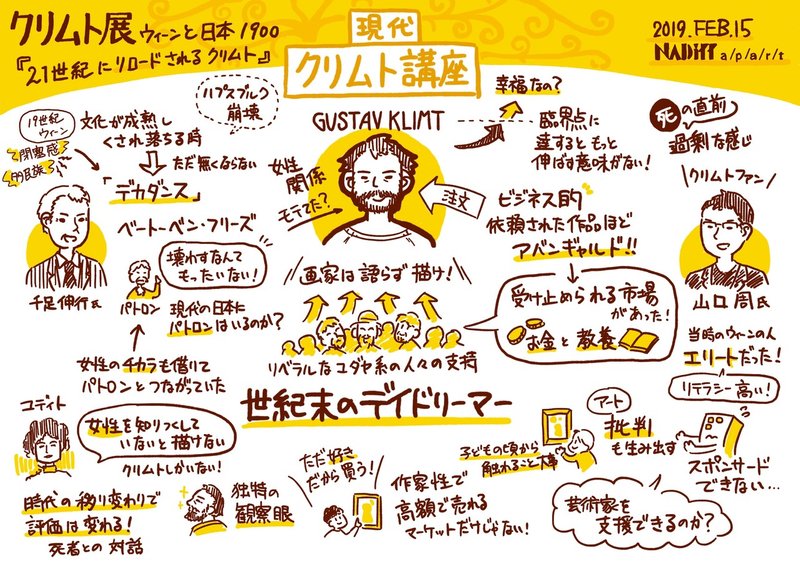 クリムト展 ウィーンと日本 1900
『21世紀にリロードされるクリムト』
現代
クリムト講座
2019.FEB.15
NADiff a/p/a/r/t
19世紀
ウィーン
閉塞感
多民族
文化が成熟し
くされ落ちる時
ハプスブルク
崩壊
ただ無くならない
「デカダンス」
千足伸行氏
ベートーベン・フリーズ
壊わすなんて
もったいない!
パトロン
現代の日本に
パトロンはいるのか?
女性のチカラも借りて
パトロンとつながっていた
GUSTAV KLIMT
女性
関係
モテてた?
注文
幸福なの?
臨界点に
達するともっと
伸ばす意味がない!
ビジネス的
依頼された作品ほど
アバンギャルド!!
死の直前
過剰な感じ
クリムトファン
山口周氏
画家は語らず描け!
リベラルなユダヤ系の人々の支持
受け止められる市場
があった!
お金と教養
当時のウィーンの人
エリートだった!
リテラシー高い!
世紀末のデイドリーマー
ユディト
女性を知りつくして
いないと描けない
クリムトしかいない!
時代の移り変わりで
評価は変わる!
死者との対話
独特の
観察眼
ただ好き
だから買う!
作家性で
高額で売れる
マーケットだけじゃない!
子どもの頃から
触れること大事
アート
批判
も生み出す
スポンサード
できない…
芸術家を
支援できるのか?